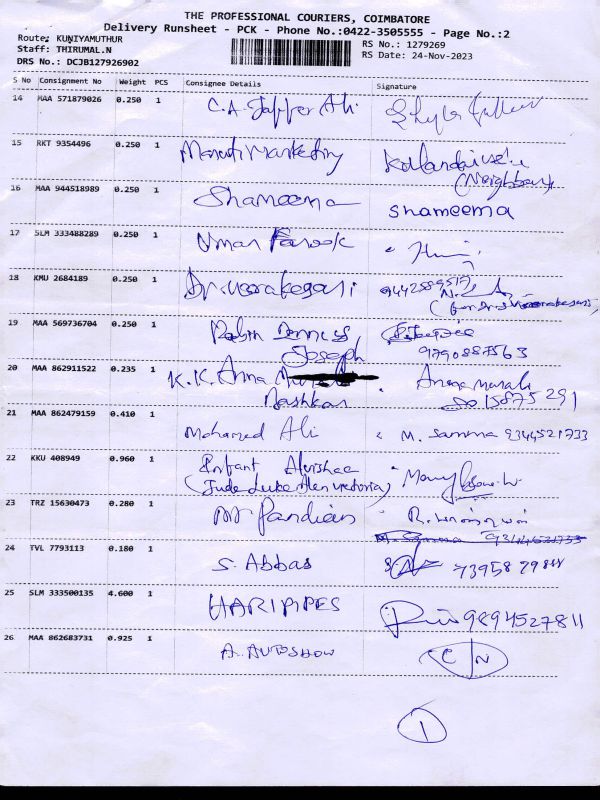 THE PROFESSIONAL COURIERS, COIMBATORE
Delivery Runsheet - PCK - Phone No.:0422-3505555 - Page No.:2
Route: KUNIYAMUTHUR
RS No.: 1279269
Staff: THIRUMAL.N
RS Date: 24-Nov-2023
DRS No.: DCJB127926902
S No Consignment No Weight PCS Consignee Details Signature
14 MAA 571879026 0.250 1 C.A. Jaffer Ali
15 RKT 9354496 0.250 1 Maruti Marketing
(Neighbour)
16 MAA 944518989 0.250 1 Shameema shameema
17 SLM 333488289 0.250 1 Umar Farook
18 KMU 2684189 0.250 1
19 MAA 569736704 0.250 1 Robin Dennis
Joseph 9790887563
20 MAA 862911522 0.235 1 K.K. Anna
Bashkar 8015875291
21 MAA 862479159 0.410 1 Mohamed Ali M. Samma 9344521733
22 KKU 408949 0.960 1 Infant
(Jude Luke Alen Victoria)
23 TRZ 15630473 0.280 1 Mr Pandian
24 TVL 7793113 0.180 1 S. Abbas
25 SLM 333500135 4.600 1 HARIPIPES 9894527811
26 MAA 862683731 0.925 1 A. AUTOSHOW C N
1